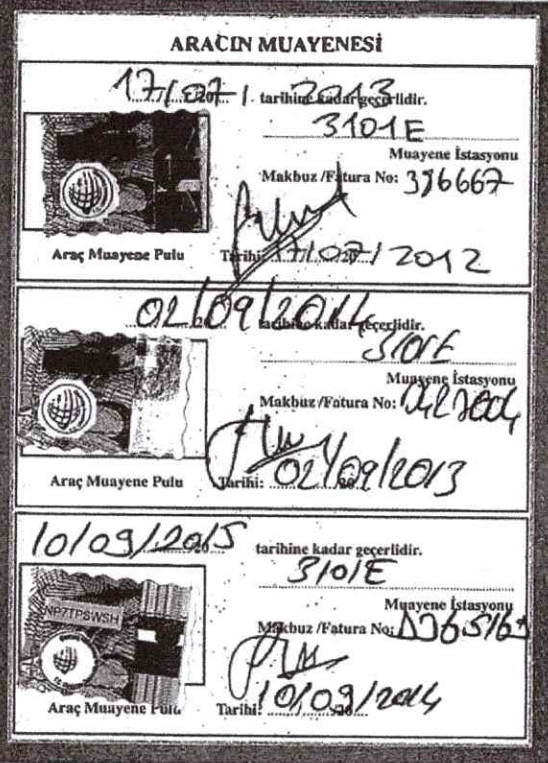 ARACIN MUAYENESİ
17/07/2013 tarihine kadar geçerlidir.
3101E
Muayene İstasyonu
Makbuz /Fatura No: 386667
Araç Muayene Pulu
Tarihi: 17/07/2012
02/09/2014 tarihine kadar geçerlidir.
3101E
Muayene İstasyonu
Makbuz /Fatura No:
Araç Muayene Pulu
Tarihi: 02/09/2013
10/09/2015 tarihine kadar geçerlidir.
3101E
NP7TPSWSH
Muayene İstasyonu
Makbuz /Fatura No:
Araç Muayene Pulu
Tarihi: 10/09/2014